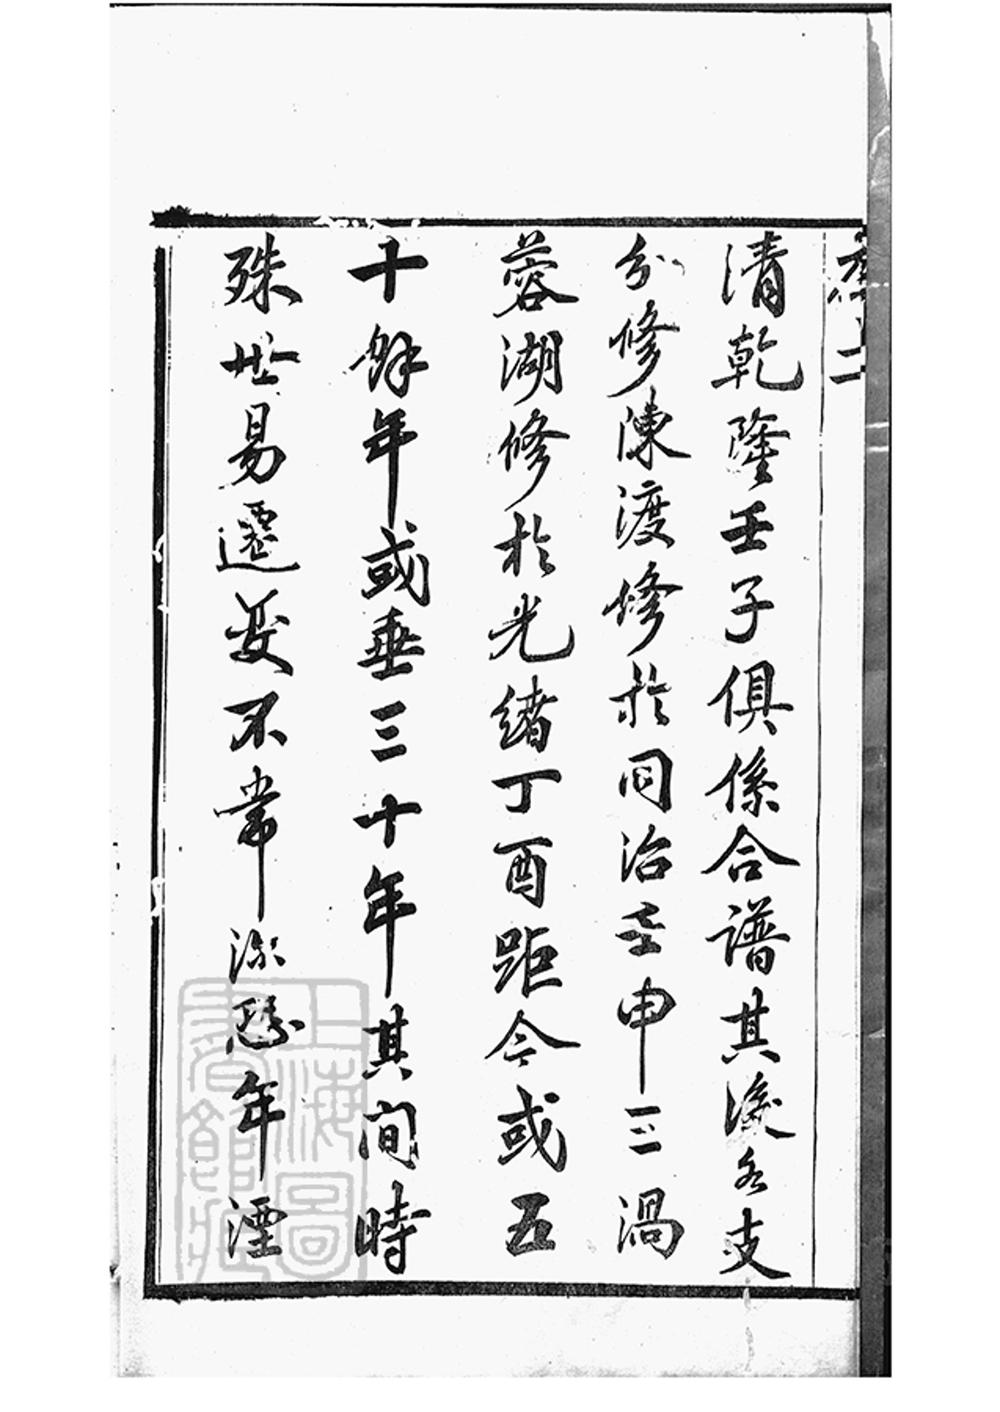 序二
清乾隆壬子俱係合譜其後各支
分修陳渡修於同治壬申三渦
蓉湖修於光緒丁酉距今或五
十餘年或垂三十年其間時
殊世易遷變不常深恐年湮
上海圖
書館藏